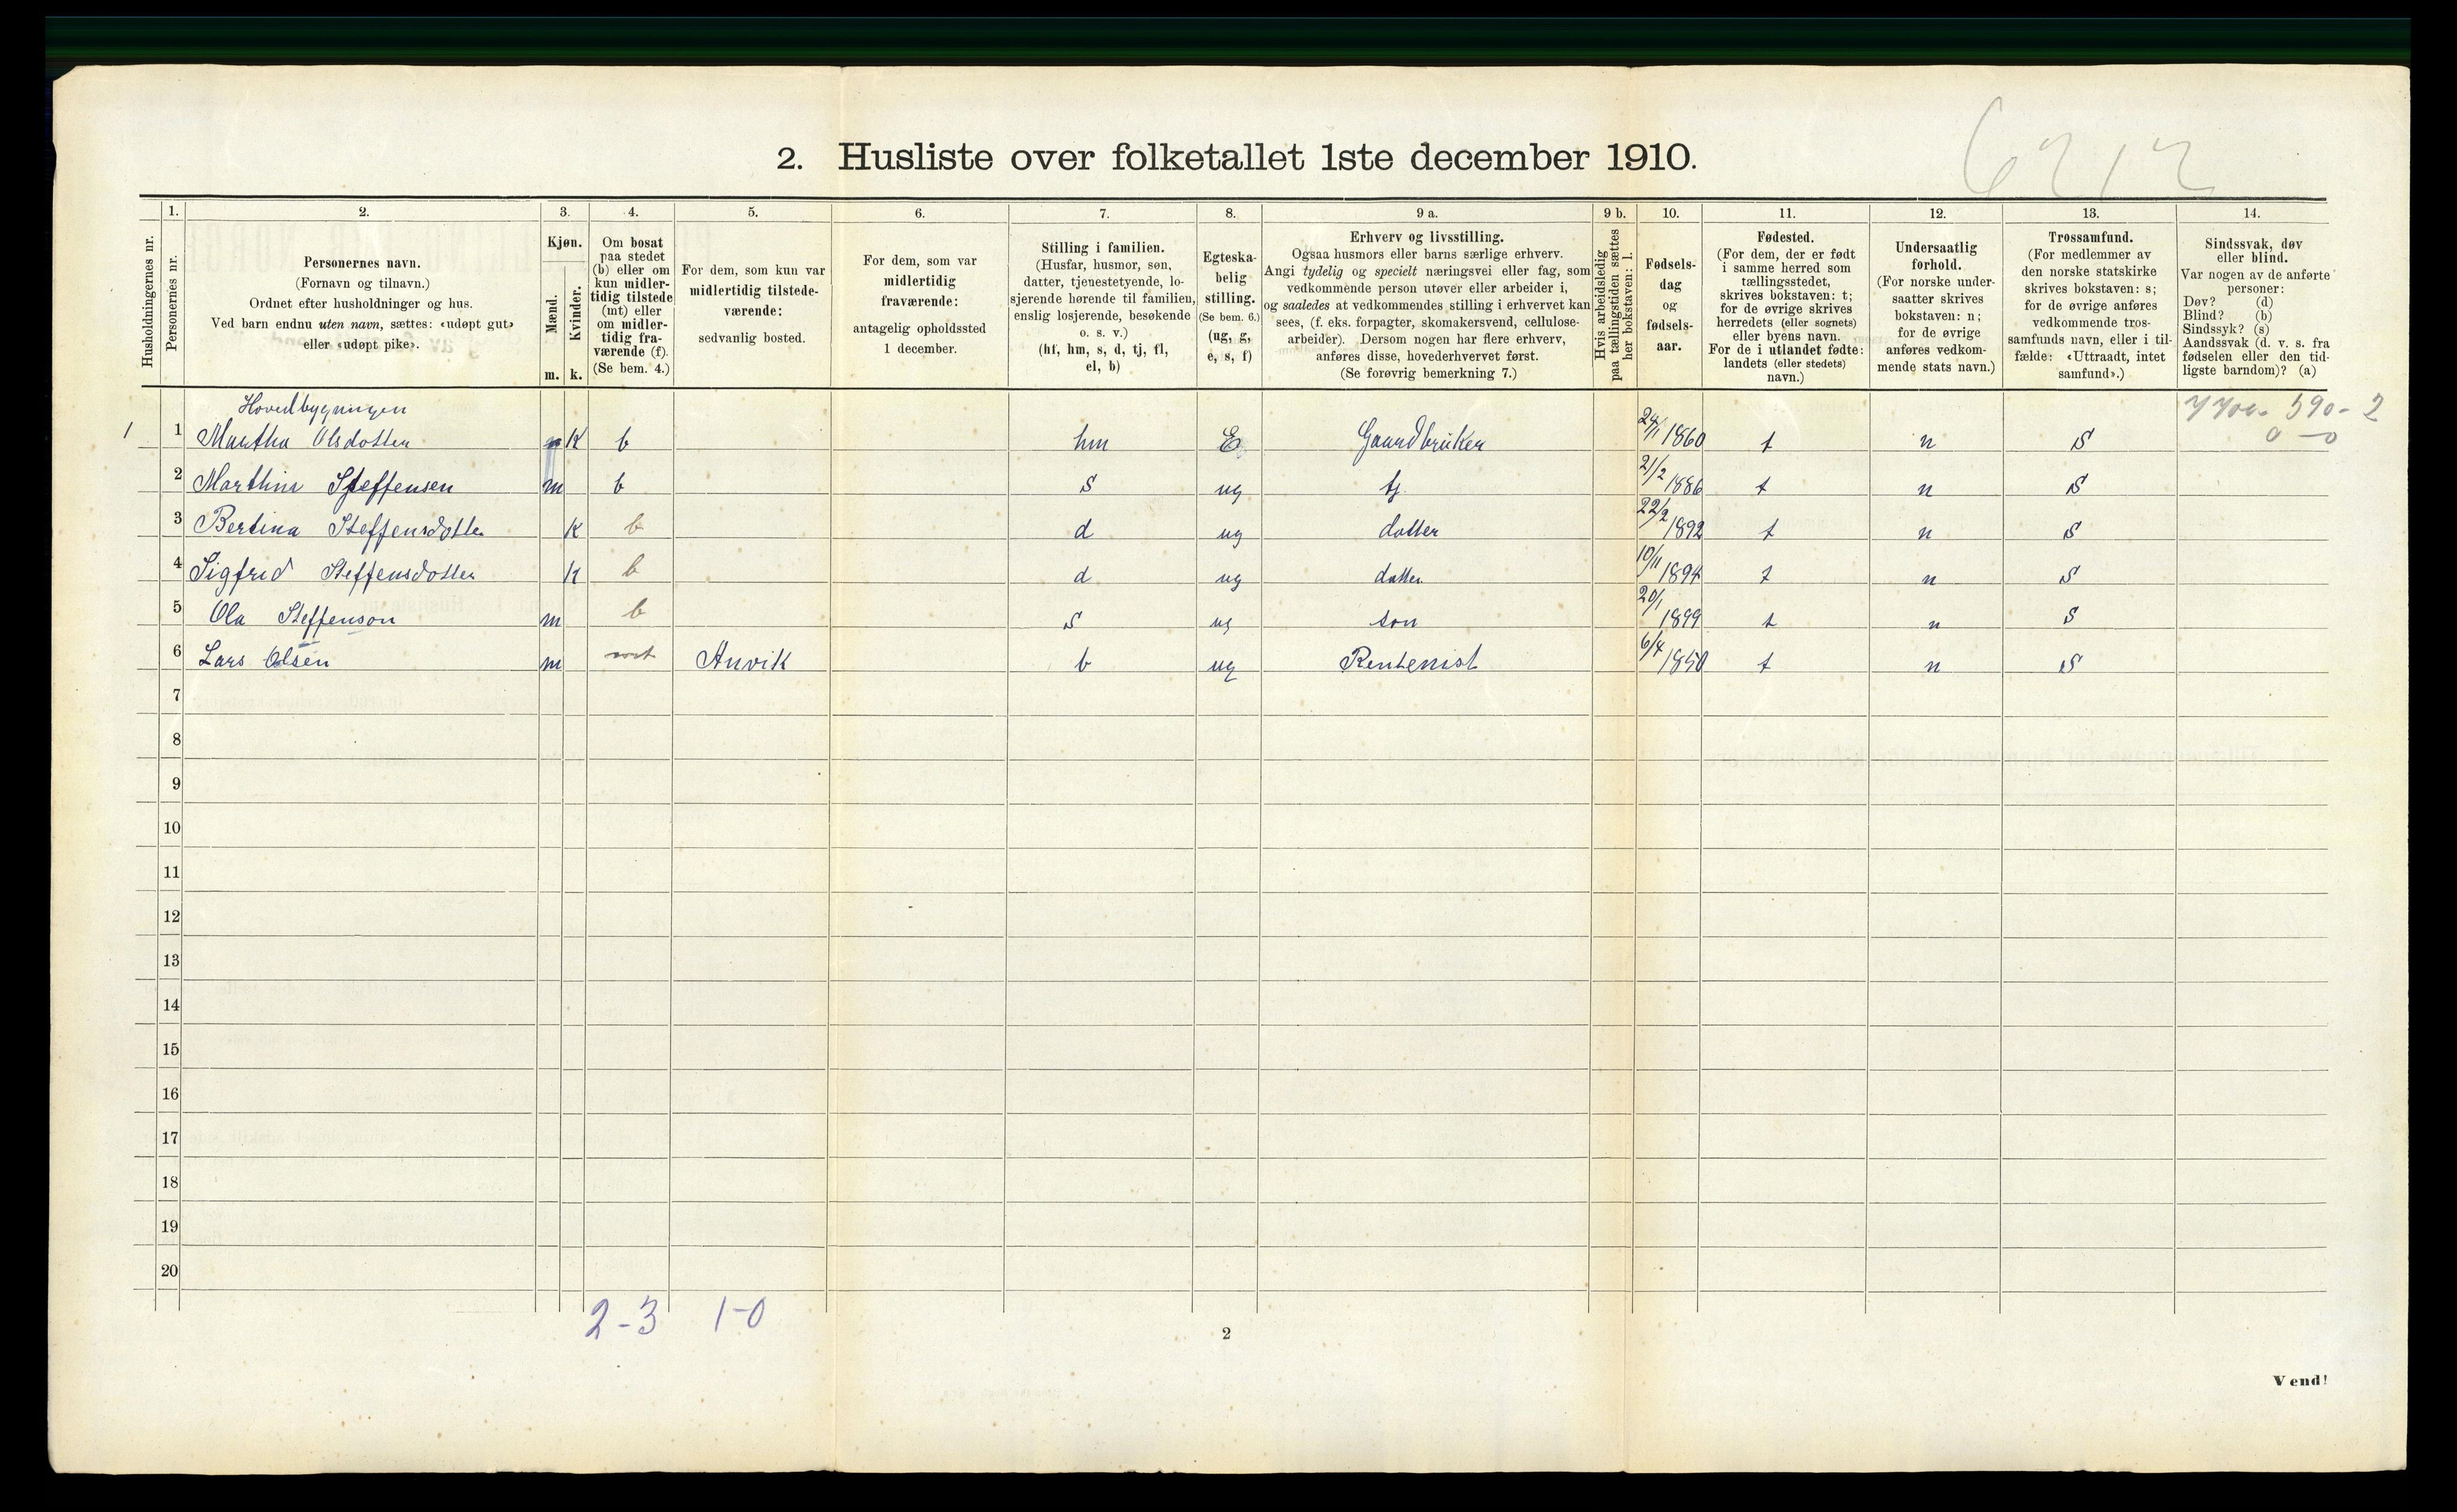 6212
2. Husliste over folketallet 1ste december 1910.
Husholdningernes nr.
1.
Personernes nr.
2.
Personernes navn.
(Fornavn og tilnavn.)
Ordnet efter husholdninger og hus.
Ved barn endnu uten navn, sættes: «udøpt gut»
eller «udøpt pike».
3.
Kjøn.
Mænd.
Kvinder.
m. k.
4.
Om bosat
paa stedet
(b) eller om
kun midler-
tidig tilstede
(mt) eller
om midler-
tidig fra-
værende (f).
(Se bem. 4.)
5.
For dem, som kun var
midlertidig tilstede-
værende:
sedvanlig bosted.
6.
For dem, som var
midlertidig
fraværende:
antagelig opholdssted
1 december.
7.
Stilling i familien.
(Husfar, husmor, søn,
datter, tjenestetyende, lo-
sjerende hørende til familien,
enslig losjerende, besøkende
o. s. v.)
(hf, hm, s, d, tj, fl,
el, b)
8.
Egteska-
belig
stilling.
(Se bem. 6.)
(ug, g,
e, s, f)
9 a.
Erhverv og livsstilling.
Ogsaa husmors eller barns særlige erhverv.
Angi tydelig og specielt næringsvei eller fag, som
vedkommende person utøver eller arbeider i,
og saaledes at vedkommendes stilling i erhvervet kan
sees, (f. eks. forpagter, skomakersvend, cellulose-
arbeider). Dersom nogen har flere erhverv,
anføres disse, hovederhvervet først.
(Se forøvrig bemerkning 7.)
9 b.
Hvis arbeidsledig
paa tællingstiden sættes
her bokstaven: l.
10.
Fødsels-
dag
og
fødsels-
aar.
11.
Fødested.
(For dem, der er født
i samme herred som
tællingsstedet,
skrives bokstaven: t;
for de øvrige skrives
herredets (eller sognets)
eller byens navn.
For de i utlandet fødte:
landets (eller stedets)
navn.)
12.
Undersaatlig
forhold.
(For norske under-
saatter skrives
bokstaven: n;
for de øvrige
anføres vedkom-
mende stats navn.)
13.
Trossamfund.
(For medlemmer av
den norske statskirke
skrives bokstaven: s;
for de øvrige anføres
vedkommende tros-
samfunds navn, eller i til-
fælde: «Uttraadt, intet
samfund».)
14.
Sindssvak, døv
eller blind.
Var nogen av de anførte
personer:
Døv? (d)
Blind? (b)
Sindssyk? (s)
Aandssvak (d. v. s. fra
fødselen eller den tid-
ligste barndom)? (a)
Hovedbygningen
590-2
0-0
1 1 Martha Olsdotter K b hm E Gaardbruker 24/11 1860 t n S
2 Marthin Steffensen m b S ug tj. 21/2 1886 t n S
3 Bertina Steffensdotter K b d ug dotter 22/2 1892 t n S
4 Sigfrid Steffensdotter K b d ug dotter 10/11 1894 t n S
5 Ola Steffenson m b S ug son 20/1 1899 t n S
6 Lars Olsen m mt Anvik b ug Rentenist 6/4 1850 t n S
7
8
9
10
11
12
13
14
15
16
17
18
19
20
2-3 1-0
2
Vend!